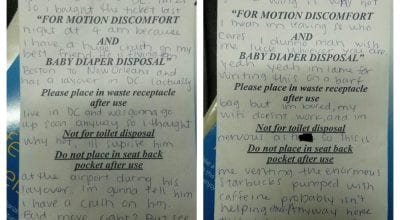 so I bought the ticket last
"FOR MOTION DISCOMFORT
night at 4 am because
AND
I have a huge crush on my
BABY DIAPER DISPOSAL"
best friend. He is going
Boston to New Orleans and
has a layover in DC. I actually
Please place in waste receptacle
after use
live in DC and was gonna go
up soon anyway. So I thought
Not for toilet disposal
why not, I'll suprise him
Do not place in seat back
pocket after use
at the airport during his
layover. I'm gonna tell him
I have a crush on him.
Bad move, right? But see
"FOR MOTION DISCOMFORT
I mean I'm leaving so who
AND
cares. I dunno man, wish
BABY DIAPER DISPOSAL"
me luck whoever you are
yeah yeah im lame for
Please place in waste receptacle
writing this on a barf
after use
bag but im bored, my
wifi doesnt work, and im
Not for toilet disposal
nervous so this is
Do not place in seat back
pocket after use
me venting the enormous
starbucks pumped with
caffeine probably isn't
helping. anyway home